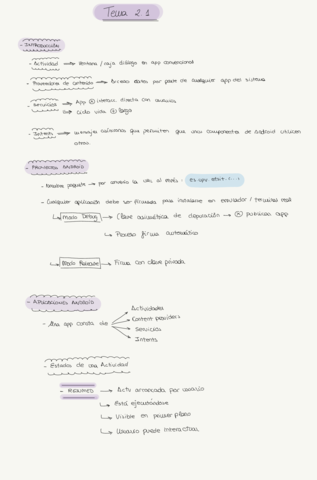 Tema 2.1
- INTRODUCCIÓN
- Actividad → Ventana / caja diálogo en app convencional
- Proveedores de contenido → Acceso datos por parte de cualquier app del sistema
- Servicios → App interac. directa con usuario
→ Ciclo vida larga
- Intents → mensajes que permiten que una componentes de Android utilicen
otros.
- Nombre paquete → por convenio la url al revés
- Cualquier aplicación debe ser firmada para instalarse en emulador / terminal real
→ Modo Debug → Clave asimétrica de depuración → publicar app
→ Proceso firma automático
→ Firma con clave privada
- APLICACIONES ANDROID
- Una app consta de
→ Actividades
→ Content providers
→ Servicios
→ Intents
- Estados de una Actividad
- RESUMED → Activ arrancada por usuario
→ Está ejecutándose
→ Visible en primer plano
→ Usuario puede interactuar